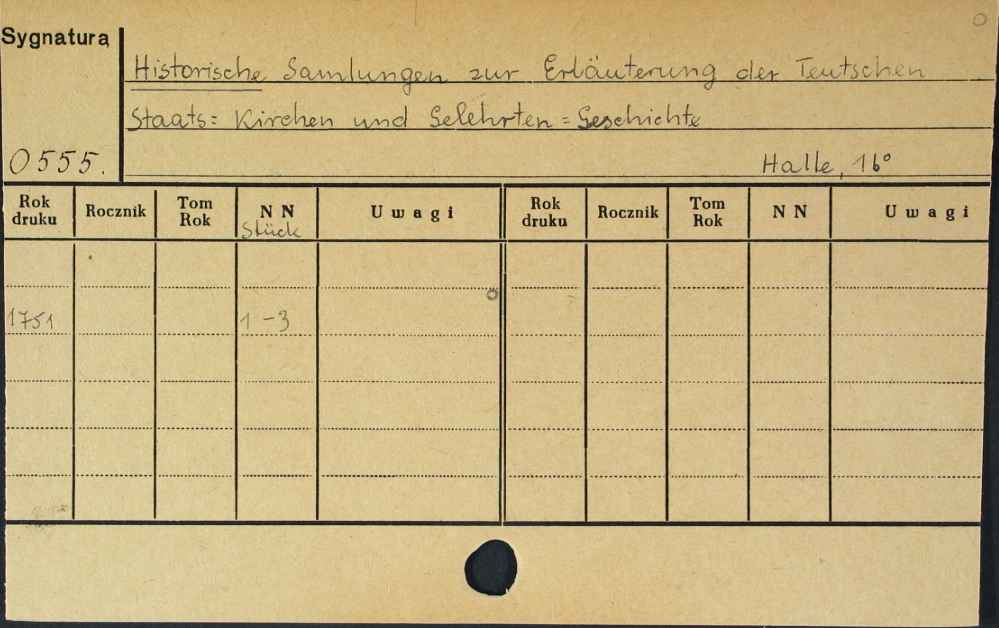 Sygnatura
Historische Samlungen zur Erläuterung der Teutschen
Staats= Kirchen und Gelehrten=Geschichte
0555.
Halle, 16°
Rok druku Rocznik Tom Rok NN Uwagi Rok druku Rocznik Tom Rok NN Uwagi
Stück
1751 1-3